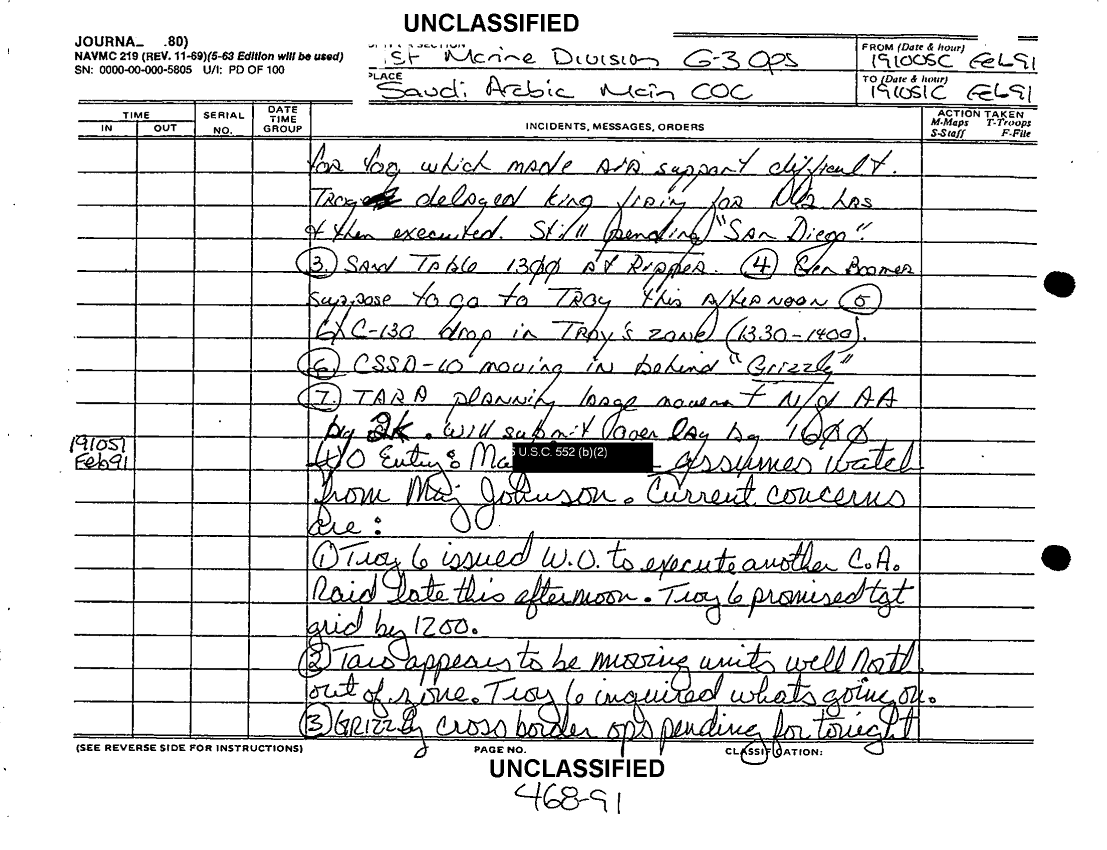 UNCLASSIFIED
JOURNA .80)
NAVMC 219 (REV. 11-69)(5-63 Edition will be used)
SN: 0000-00-000-5805 U/I: PD OF 100
1st Marine Division G-3 Ops
PLACE
Saudi Arabia Main COC
FROM (Date & hour)
191005C Feb91
TO (Date & hour)
191051C Feb91
TIME
IN OUT
SERIAL NO.
DATE TIME GROUP
INCIDENTS, MESSAGES, ORDERS
ACTION TAKEN
M-Maps T-Troops
S-Staff F-File
for fog which made air support difficult.
Troy delayed king firing for hrs
& then executed. Still pending "San Diego".
③ Sand Table 1300 at Ripper. ④ Gen Boomer
suppose to go to Troy this afternoon ⑤
6X C-130 drop in Troy's zone (1330-1400).
⑥ CSSD-10 moving in behind "Grizzly"
⑦ TARA planning large movement N/of AA
by 2K. Will submit overlay by 1600
191051
Feb91
W/O Entry: Ma U.S.C. 552 (b)(2) assumes watch
from Maj Johnson. Current concerns
are:
① Troy 6 issued W.O. to execute another C.A.
Raid late this afternoon. Troy 6 promised tgt
grid by 1200.
② Taro appears to be moving units well North
out of zone. Troy 6 inquired whats going on.
③ GRIZZLY cross border ops pending for tonight
(SEE REVERSE SIDE FOR INSTRUCTIONS)
PAGE NO.
CLASSIFICATION:
UNCLASSIFIED
468-91